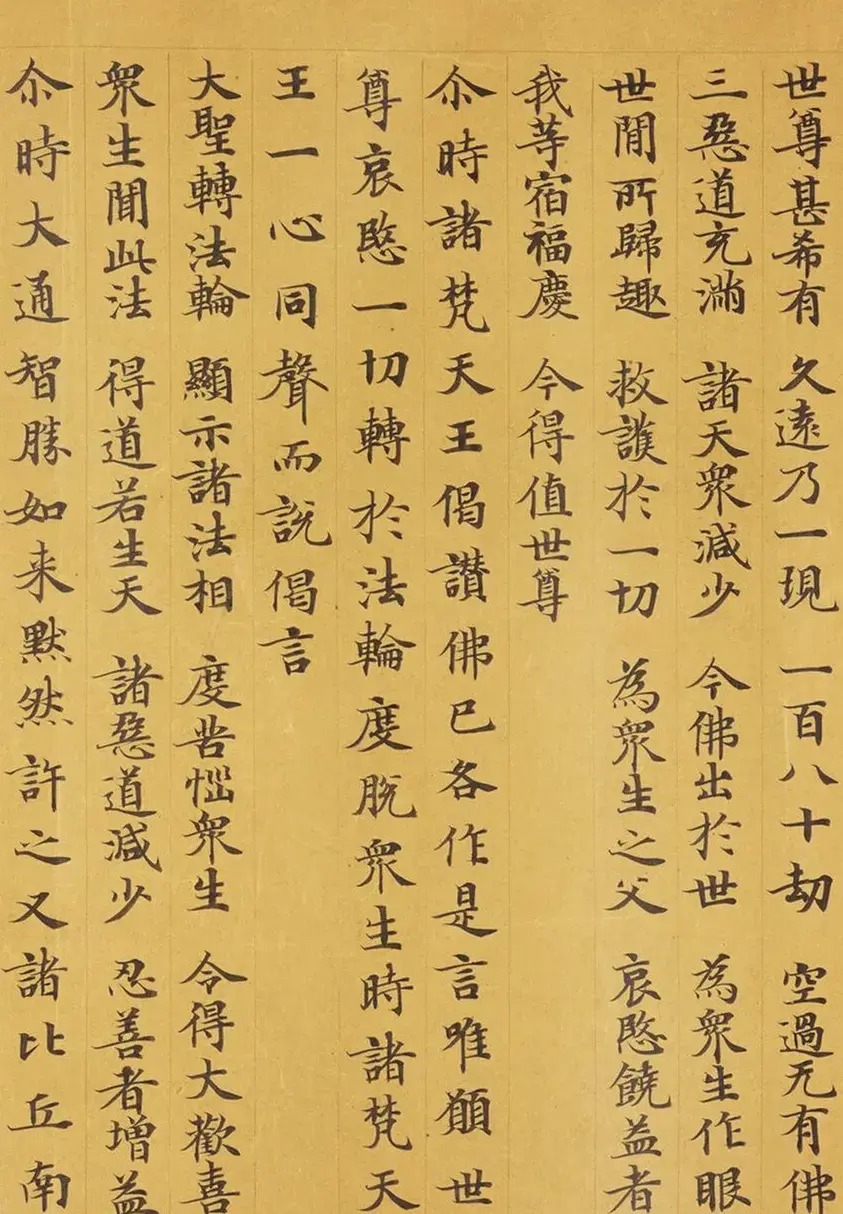 世尊甚希有 久遠乃一現 一百八十劫 空過无有佛
三惡道充滿 諸天衆減少 今佛出於世 為衆生作眼
世間所歸趣 救護於一切 為衆生之父 哀愍饒益者
我等宿福慶 今得值世尊
尒時諸梵天王偈讚佛已各作是言唯願世
尊哀愍一切轉於法輪度脫衆生時諸梵天
王一心同聲而說偈言
大聖轉法輪 顯示諸法相 度苦惱衆生 令得大歡喜
衆生聞此法 得道若生天 諸惡道減少 忍善者增益
尒時大通智勝如来默然許之又諸比丘南